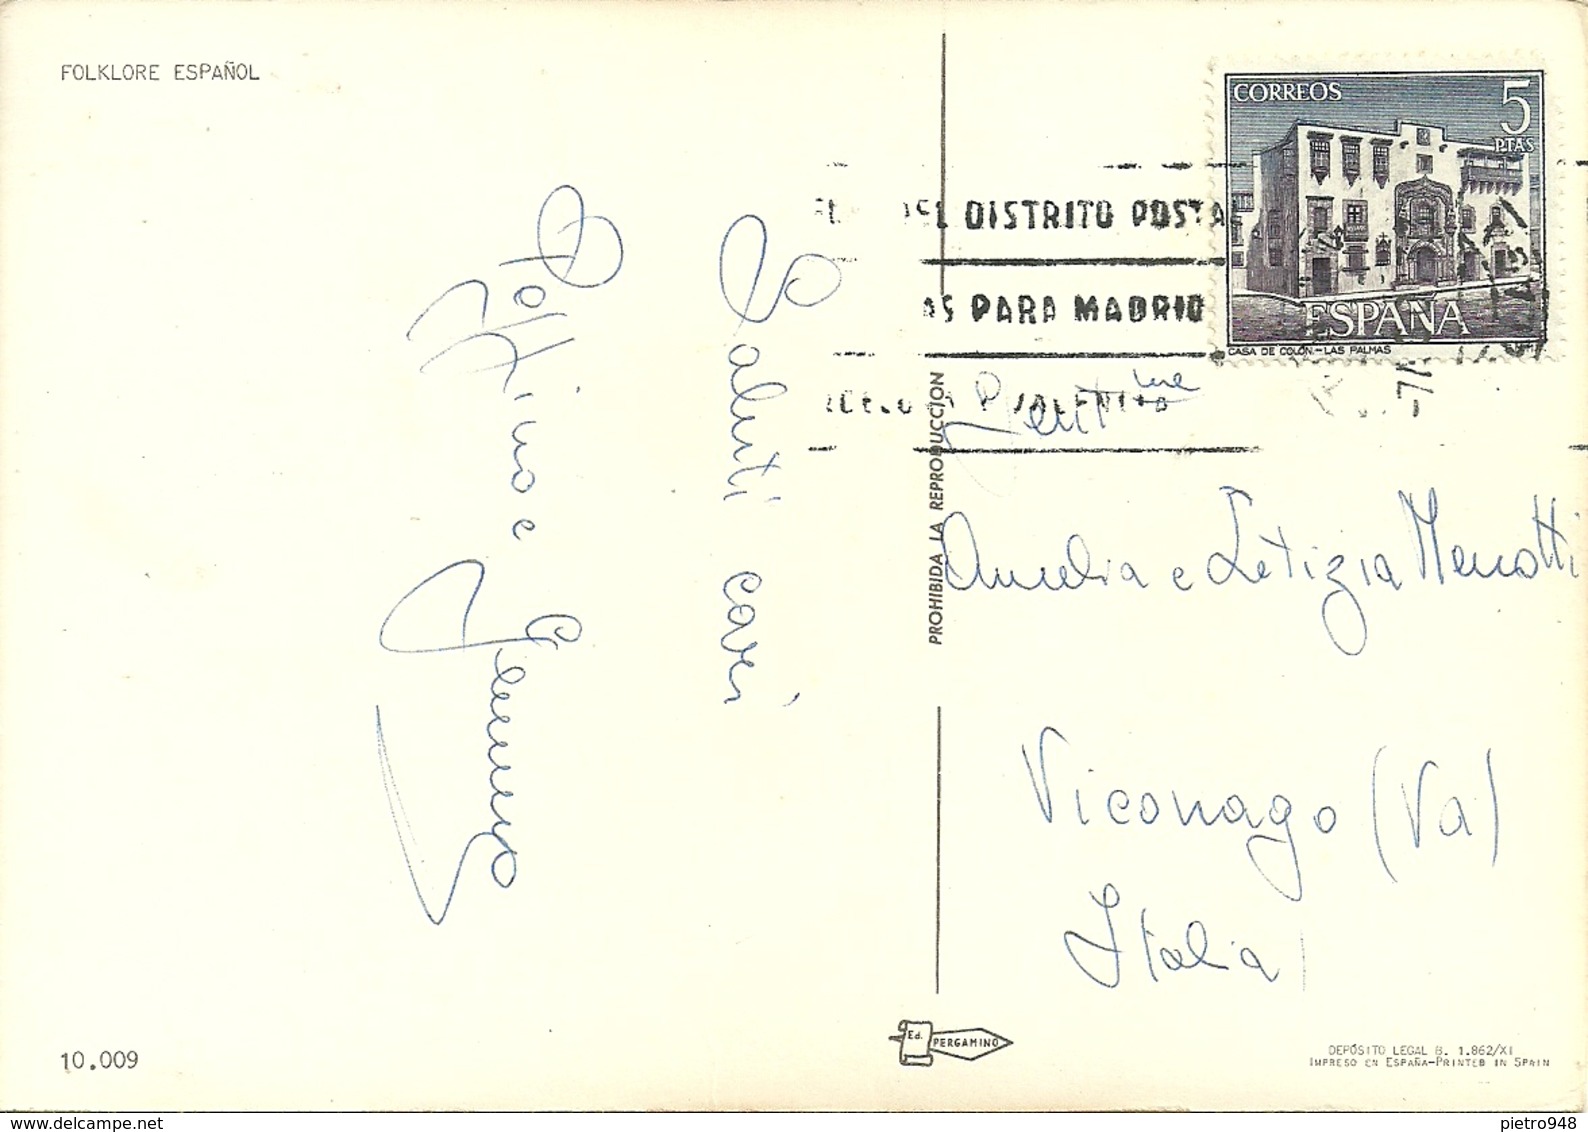 FOLKLORE ESPAÑOL
Saluti cari
Pottino e
10.009
PROHIBIDA LA REPRODUCCION
Ed. PERGAMINO
CORREOS
5
PTAS
ESPAÑA
CASA DE COLÓN.-LAS PALMAS
DEL DISTRITO POSTAL
PARA MADRID
VALENCIA
Gent
Amelia e Letizia Menotti
Viconago (Va)
Italia
DEPÓSITO LEGAL B. 1.862/XI
IMPRESO EN ESPAÑA-PRINTED IN SPAIN
pietro948